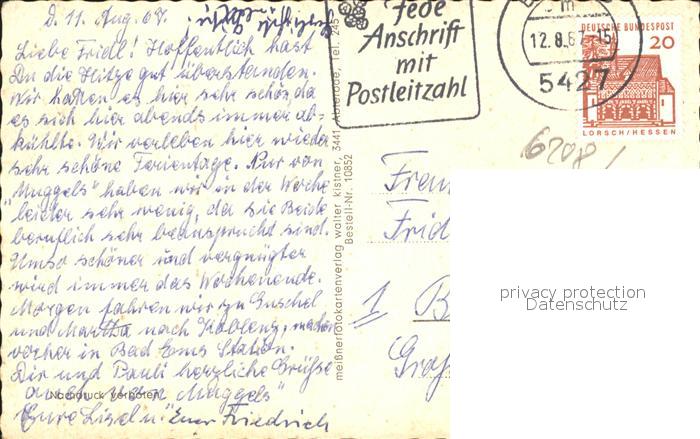 D. 11. Aug. 67.
Liebe Fridl! Hoffentlich hast
Du die Hitze gut überstanden.
Wir hatten es hier sehr schön, da
es sich hier abends immer ab-
kühlte. Wir verleben hier wieder
sehr schöne Ferientage. Nur von
"Muggels" haben wir in der Woche
leider sehr wenig, da sie Beide
beruflich sehr beansprucht sind.
Umso schöner und vergnügter
wird immer das Wochenende.
Morgen fahren wir zu Guschel
und Martha nach Koblenz, machen
vorher in Bad Ems Station.
Dir und Pauli herzliche Grüße
auch von "Muggels"
Eure Lisel u. Euer Friedrich
Nachdruck verboten
meißnerfotokartenverlag walter kistner, 3441 Abterode, Tel. 245
Bestell-Nr. 10852
jede
Anschrift
mit
Postleitzahl
12.8.6
5427
DEUTSCHE BUNDESPOST
20
LORSCH/HESSEN
6208/
Frau
Frid
1 B
privacy protection
Datenschutz